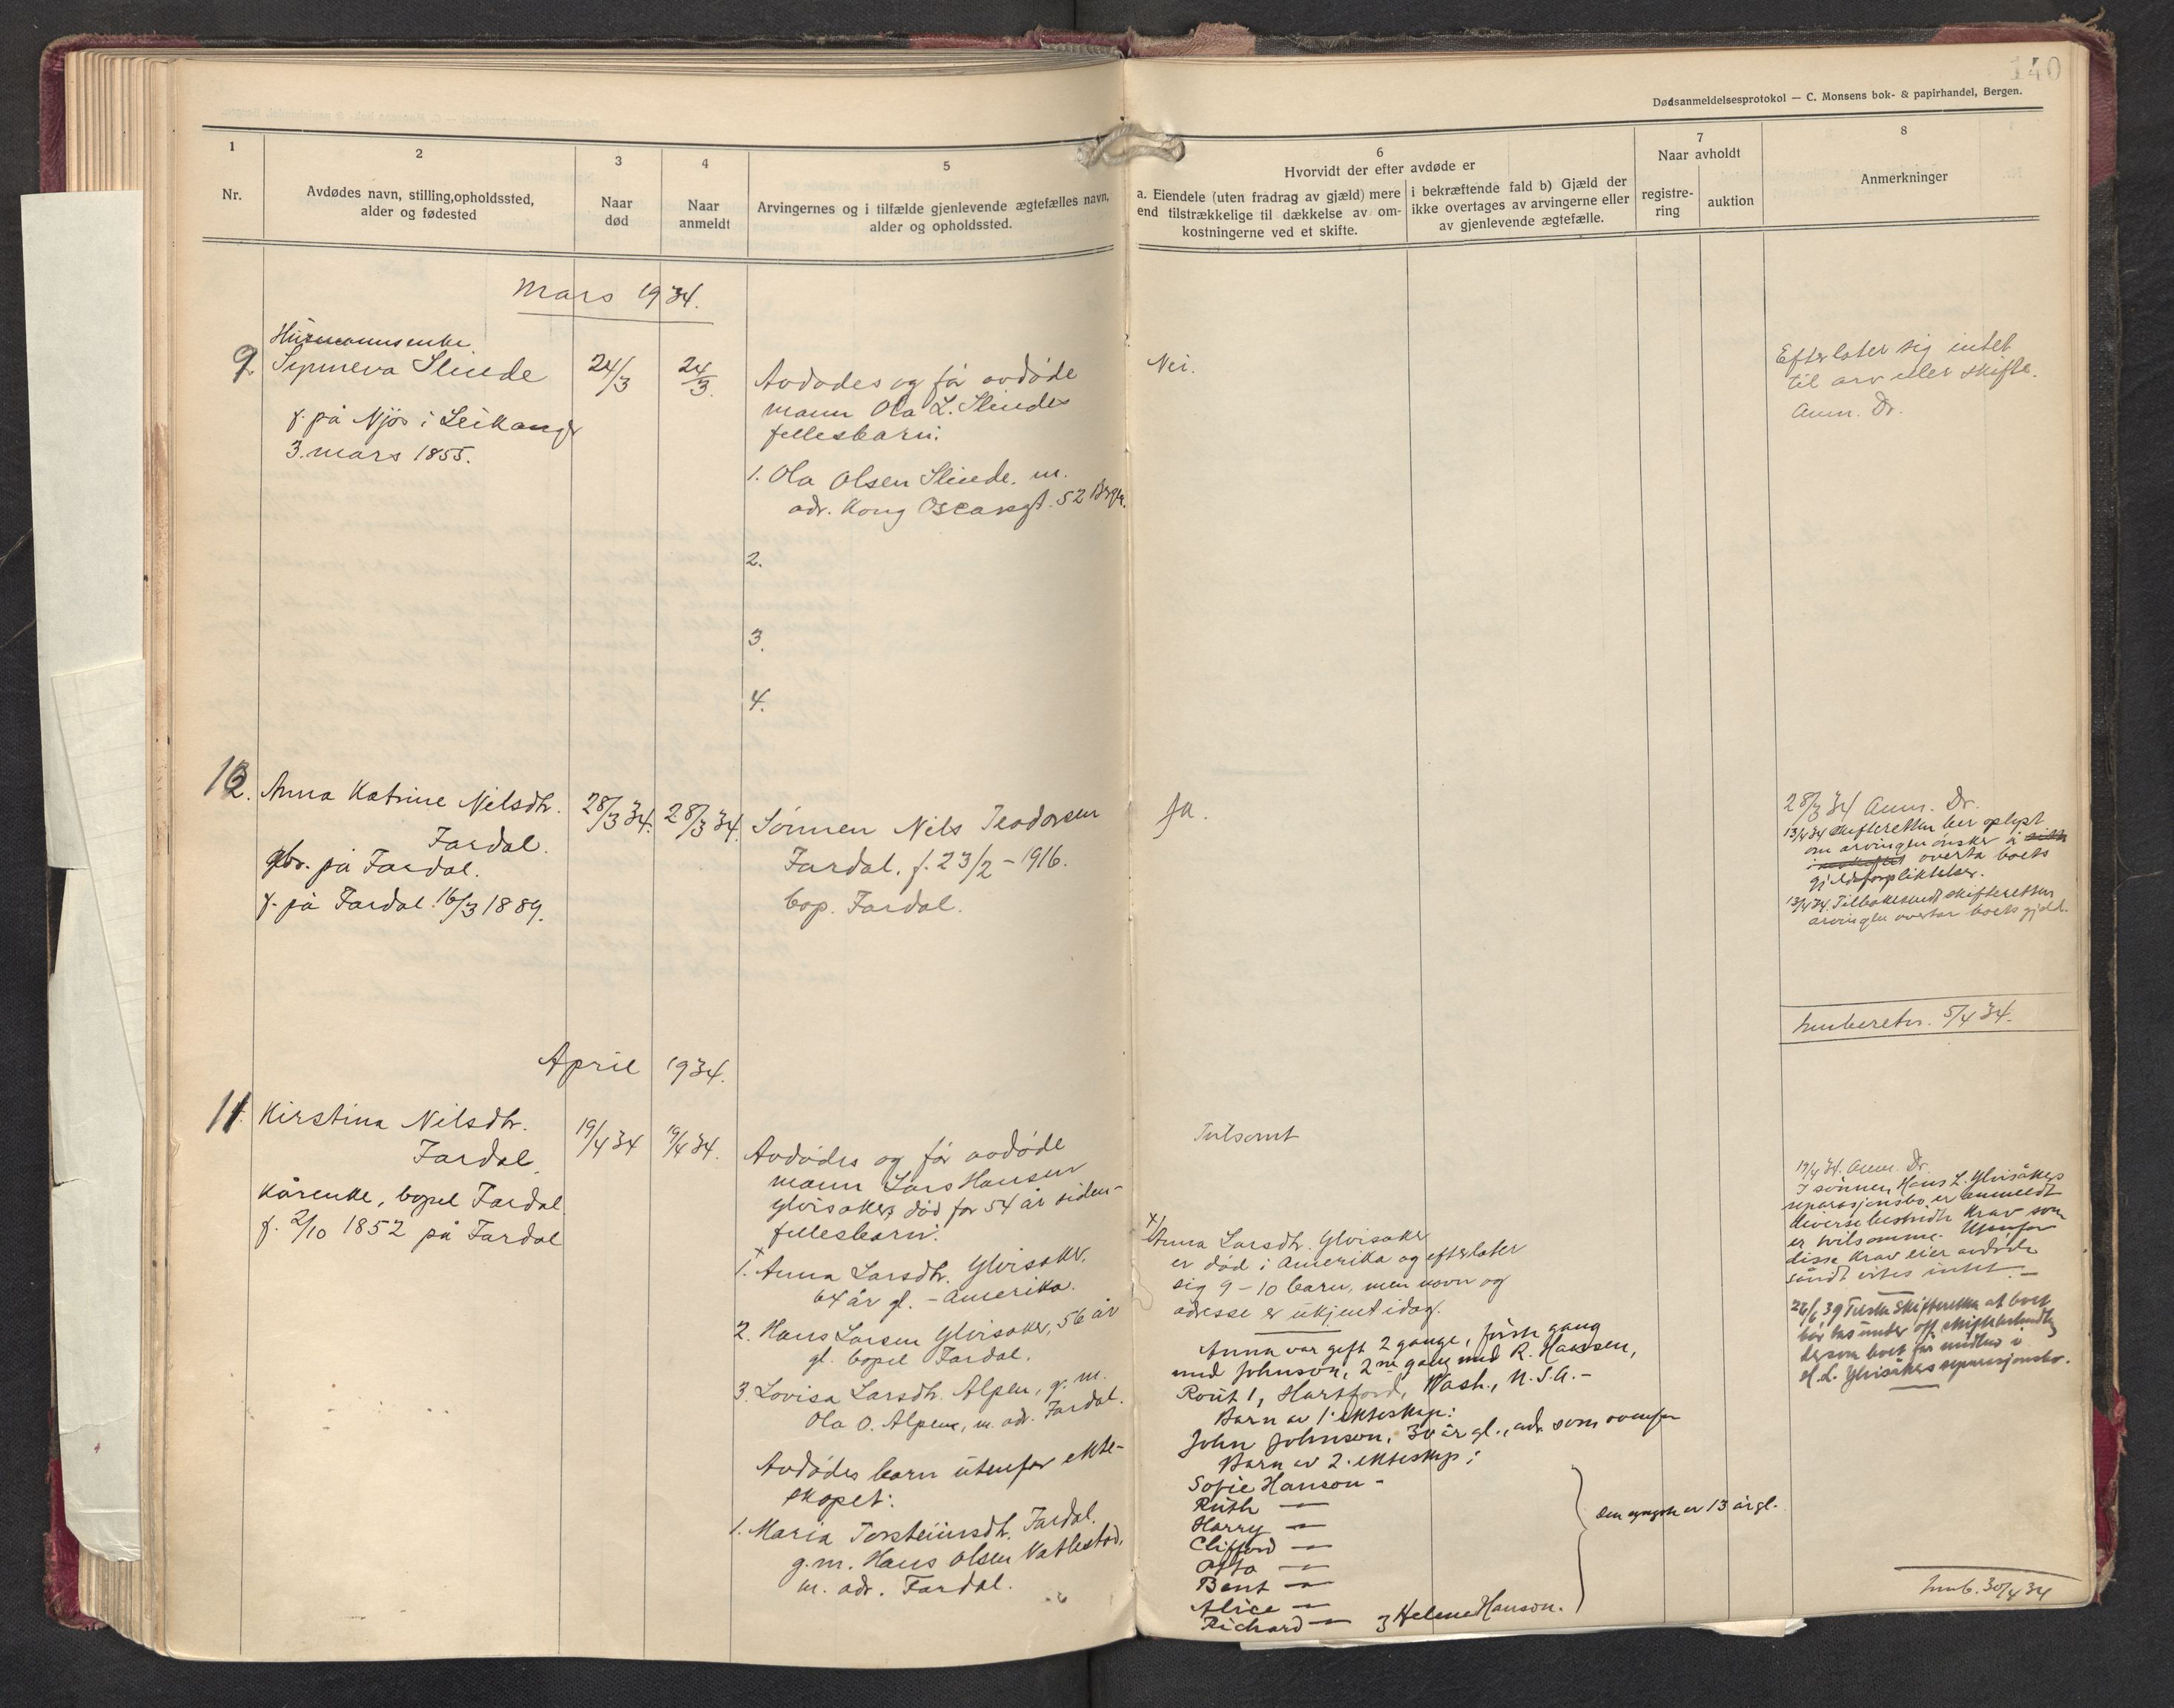 140
Dødsanmeldelsesprotokol — C. Monsens bok- & papirhandel, Bergen.
1
Nr.
2
Avdødes navn, stilling, opholdssted,
alder og fødested
3
Naar
død
4
Naar
anmeldt
5
Arvingernes og i tilfælde gjenlevende ægtefælles navn,
alder og opholdssted.
6
Hvorvidt der efter avdøde er
a. Eiendele (uten fradrag av gjæld) mere
end tilstrækkelige til dækkelse av om-
kostningerne ved et skifte.
i bekræftende fald b) Gjæld der
ikke overtages av arvingerne eller
av gjenlevende ægtefælle.
7
Naar avholdt
registre-
ring
auktion
8
Anmerkninger
Mars 1934.
Husmannsenke
9. Synneva Slinde
f. på Njøs i Leikanger
3. mars 1855.
24/3
24/3.
Avdødes og før avdøde
mann Ola L. Slindes
fellesbarn:
1. Ola Olsen Slinde, m.
adr. Kong Oscarsgt. 52 Bergen.
2.
3.
4.
Nei.
Efterlater sig intet
til arv eller skifte.
Anm. Dr.
10. Anna Katrine Nilsdtr.
Fardal.
gbr. på Fardal.
f. på Fardal 16/3 1889.
28/3 34.
28/3 34.
Sønnen Nils Teodorsen
Fardal. f. 23/2 - 1916.
bop. Fardal.
Ja.
28/3 34 Anm. Dr.
13/4 34 Skifteretten ber oplyst
om arvingen ønsker å
overta boets
gjeldsforpliktelser.
13/4 34. Tilbakesendt skifteretten
arvingen overtar boets gjeld.
Innberetn. 5/4 34.
April 1934.
11. Kirstina Nilsdtr.
Fardal.
Kårenke, bopel Fardal.
f. 2/10 1852 på Fardal
19/4 34
19/4 34.
Avdødes og før avdøde
mann Lars Hansen
Ylvisakers død for 54 år siden -
fellesbarn:
x
1. Anna Larsdtr. Ylvisaker.
64 år gl. - Amerika.
2. Hans Larsen Ylvisaker, 56 år
gl. bopel Fardal.
3. Lovisa Larsdtr. Alpen, g. m.
Ola O. Alpen, m. adr. Fardal.
Avdødes barn utenfor ekte-
skapet:
1. Maria Torsteinsdtr. Fardal.
g. m. Hans Olsen Vatlestad,
m. adr. Fardal.
Tvilsomt
x/
Anna Larsdtr. Ylvisaker
er død i Amerika og efterlater
sig 9 - 10 barn, men navn og
adresse er ukjent idag.
Anna var gift 2 gange, første gang
med Johnson, 2ne gang med R. Hanssen,
Rout 1, Hartford, Wash., U.S.A. -
Barn av 1. ekteskap:
John Johnson, 30 år gl., adr. som ovenfor
Barn av 2. ekteskap:
Sofie Hanson -
Ruth —
Harry —
Clifford —
Otto —
Bent —
Alice —
Richard — 3 Helene Hanson.
den yngste er 13 år gl.
19/4 34. Anm. Dr.
I sønnen, Hans L. Ylvisåkers
separasjonsbo, er anmeldt
diverse bestridte krav som
er tvilsomme. Utenfor
disse krav eier avdøde
såvidt vites intet. —
26/6 39 Skifteretten at boet
bør tas under off. skiftebehandling
dersom boet får midler i
H. L. Ylvisåkers separasjonsbo.
Innb. 30/4 34